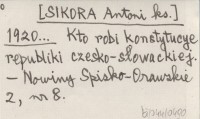 [SIKORA Antoni ks.]
1920... Kto robi konstytucye
republiki czesko-słowackiej.
— Nowiny Spisko-Orawskie
2, nr 8.